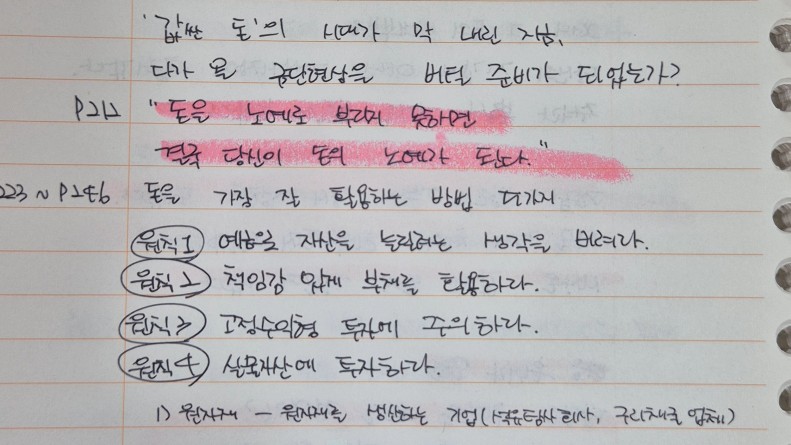 '값싼 돈'의 시대가 막 내린 지금,
다가 올 금단현상을 버틸 준비가 되었는가?
P212 "돈을 노예로 부리지 못하면
결국 당신이 돈의 노예가 된다."
223 ~ P246 돈을 가장 잘 활용하는 방법 더가지
원칙 1 예금으로 자산을 늘리려는 생각을 버려라.
원칙 2 책임감 있게 부채를 활용하라.
원칙 3 고정수익형 투자에 주의하라.
원칙 4 실물자산에 투자하라.
1) 원자재 - 원자재를 생산하는 기업(석유탐사회사, 구리채굴 업체)